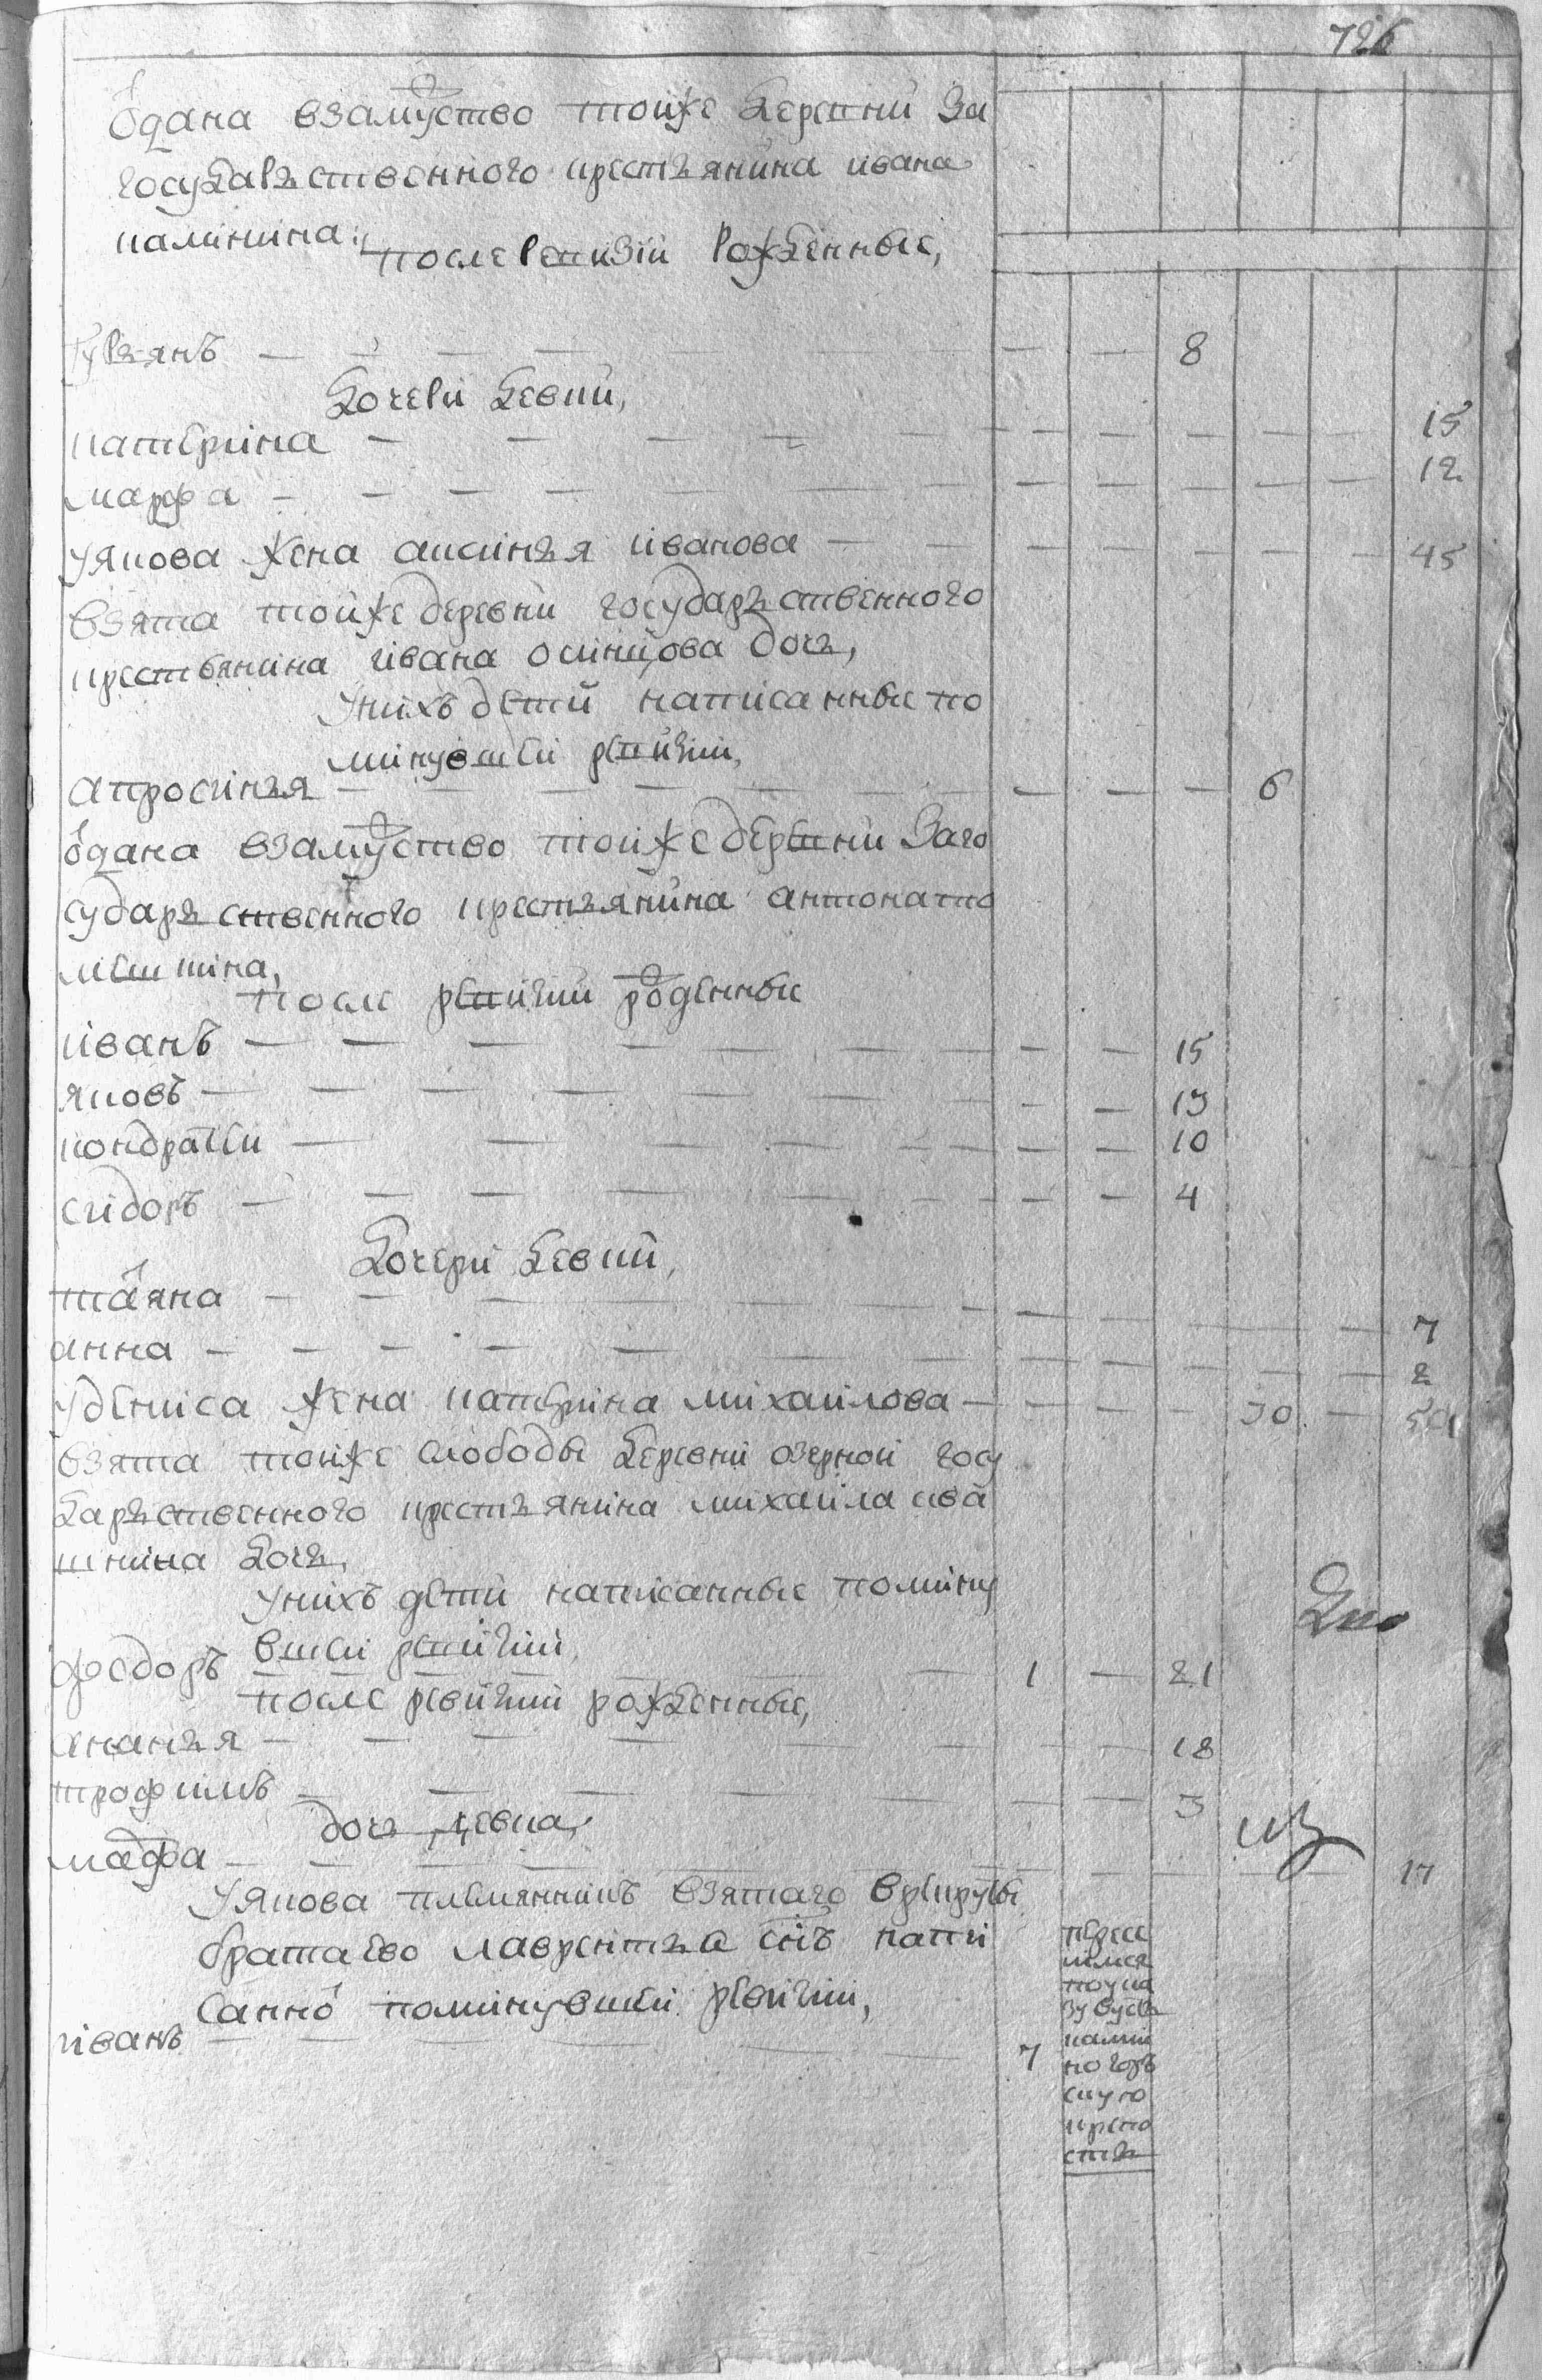 726
Отдана взамуство тойже деревни за
государьственного крестьянина ивана
калинина,
после ревизии рожденные,
Гурьянъ — — — 8
дочери девки,
катерина — — — 15
марфа — — — 12
у якова жена аксинья иванова — — — 45
взята тойже деревни государьственного
крестьянина ивана осинцова дочь,
Унихъ дети написанные по
минувшей ревизии,
апросинья — — — 6
отдана взамуство тойже деревни заго
сударьственного крестьянина антона по
после ревизии рожденные
иванъ — — — 15
яковъ — — — 13
кондратей — — — 10
сидоръ — — — 4
дочери девки,
татьяна — — — 7
анна — — — 2
у дениса жена катерина михаилова — — — 30 —
взята тойже слободы деревни озерной госу
дарьственного крестьянина михаила ива
шкина дочь,
Унихъ дети написанные помину
вшей ревизии,
федоръ — — — 1 — 21
после ревизии рожденные,
ананья — — — 18
трофимъ — — — 3
дочь девка,
марфа — — — 17
из
Уякова племянникъ взятаго врекруты
брата ево лаврентья сынъ напи
санной поминувшей ревизии,
иванъ — — — 7
пересе
лился
поука
зу вусть
камен
ногор
скую
крепо
сть